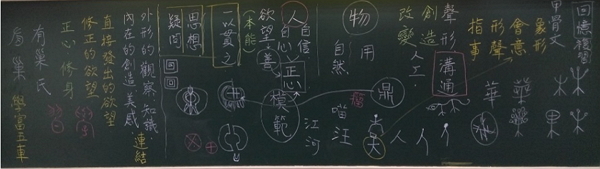 回憶複習
甲骨文
象形
會意
形聲
指事
華
果
聲形
創造
改變
人工
溝通
物
用
自然
鼎
喵汪
江河
犬
人
人自信
自心
正心
欲望
本能
模範
一以貫之
思想
疑問
回回
外形的觀察 知識
內在的創造 美感
連結
直接發出的欲望
修正的欲望
正心 修身
有巢氏
學富五車